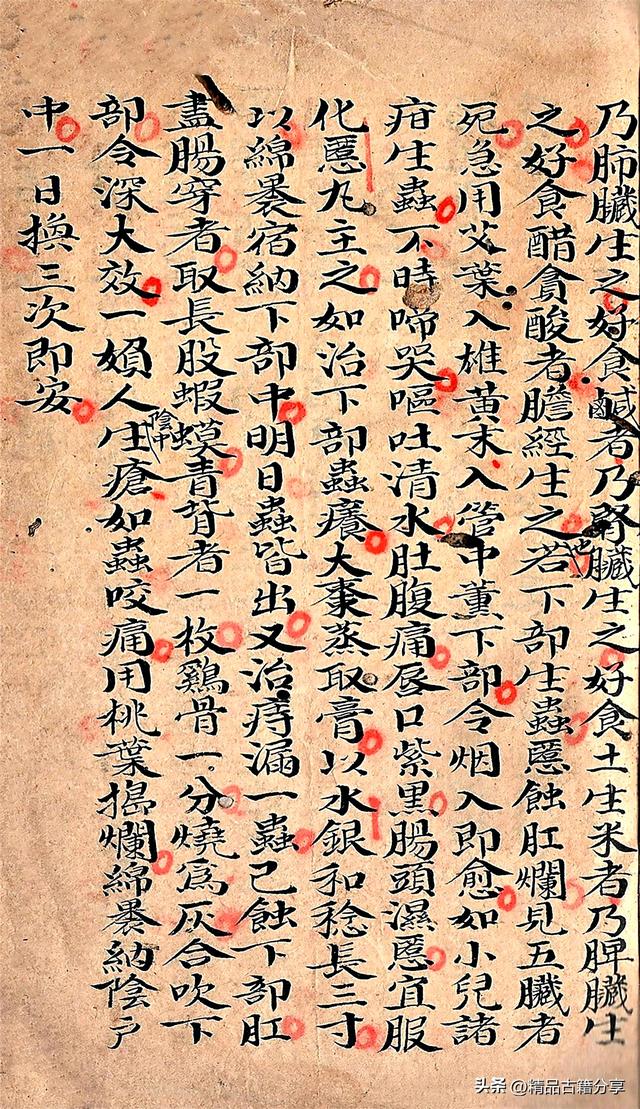 乃肺臟生之好食鹹者乃腎臟生之好食土生米者乃脾臟生
之好食醋貪酸者膽經生之若下部生蟲𧏾蝕肛爛見五臟者
死急用艾葉入雄黃末入管中薰下部令烟入即愈如小兒諸
疳生蟲不時啼哭嘔吐清水肚腹痛唇口紫黑腸頭濕𧏾宜服
化𧏾丸主之如治下部蟲癢大棗蒸取膏以水銀和稔長三寸
以綿褁宿納下部中明日蟲皆出又治痔漏一蟲已蝕下部肛
盡腸穿者取長股蝦蟆青背者一枚鷄骨一分燒爲灰合吹下
部令深大效一婦人陰中生瘡如蟲咬痛用桃葉搗爛綿褁納陰户
中一日換三次即安
也
头条 @精品古籍分享